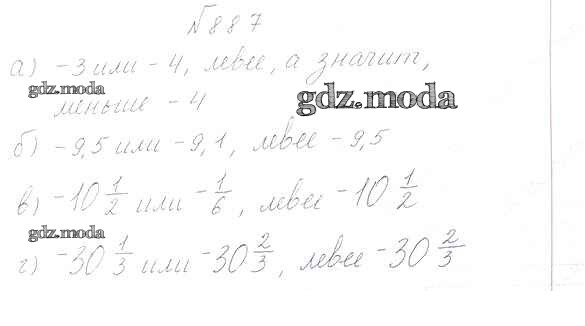 №887
а) -3 или -4, левее, а значит,
gdz.moda
меньше -4
gdz.moda
б) -9,5 или -9,1, левее -9,5
в) -10 1/2 или -1/6, левее -10 1/2
gdz.moda
г) -30 1/3 или -30 2/3, левее -30 2/3